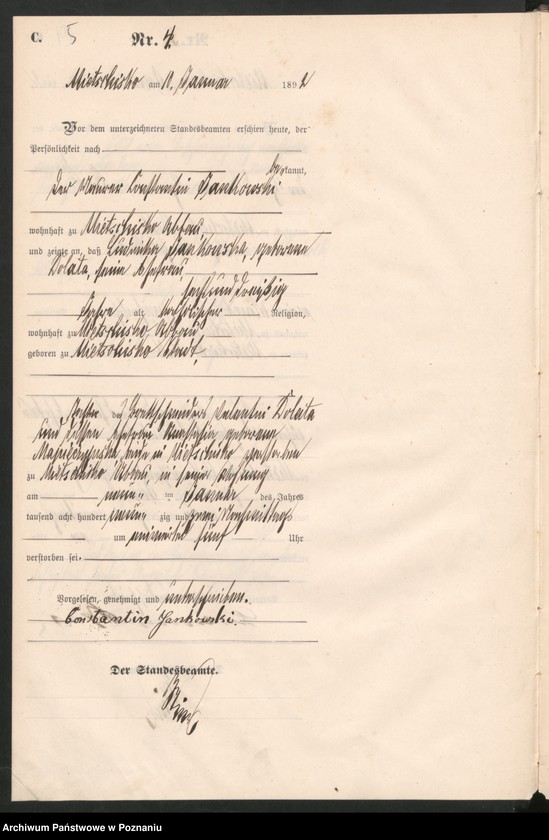 C. 5
Nr. 4.
Mietschisko am 10. Januar 1892
Vor dem unterzeichneten Standesbeamten erschien heute, der
Persönlichkeit nach
bekannt,
der Maurer Constantin Jankowski
wohnhaft zu Mietschisko Abbau
und zeigte an, daß Ludwika Jankowska, geborene
Dolata, seine Ehefrau,
sechsunddreißig
Jahre alt, katholischer Religion,
wohnhaft zu Mietschisko Abbau
geboren zu Mietschisko Stadt,
Tochter des Brettschneiders Valentin Dolata
und dessen Ehefrau Anastasia geborene
in Mietschisko
zu Mietschisko Abbau, in seiner Wohnung
am neun ten Januar des Jahres
tausend acht hundert neun zig und zwei Nachmittags
um fünf Uhr
verstorben sei.
Vorgelesen, genehmigt und unterschrieben.
Constantin Jankowski.
Der Standesbeamte.
Archiwum Państwowe w Poznaniu